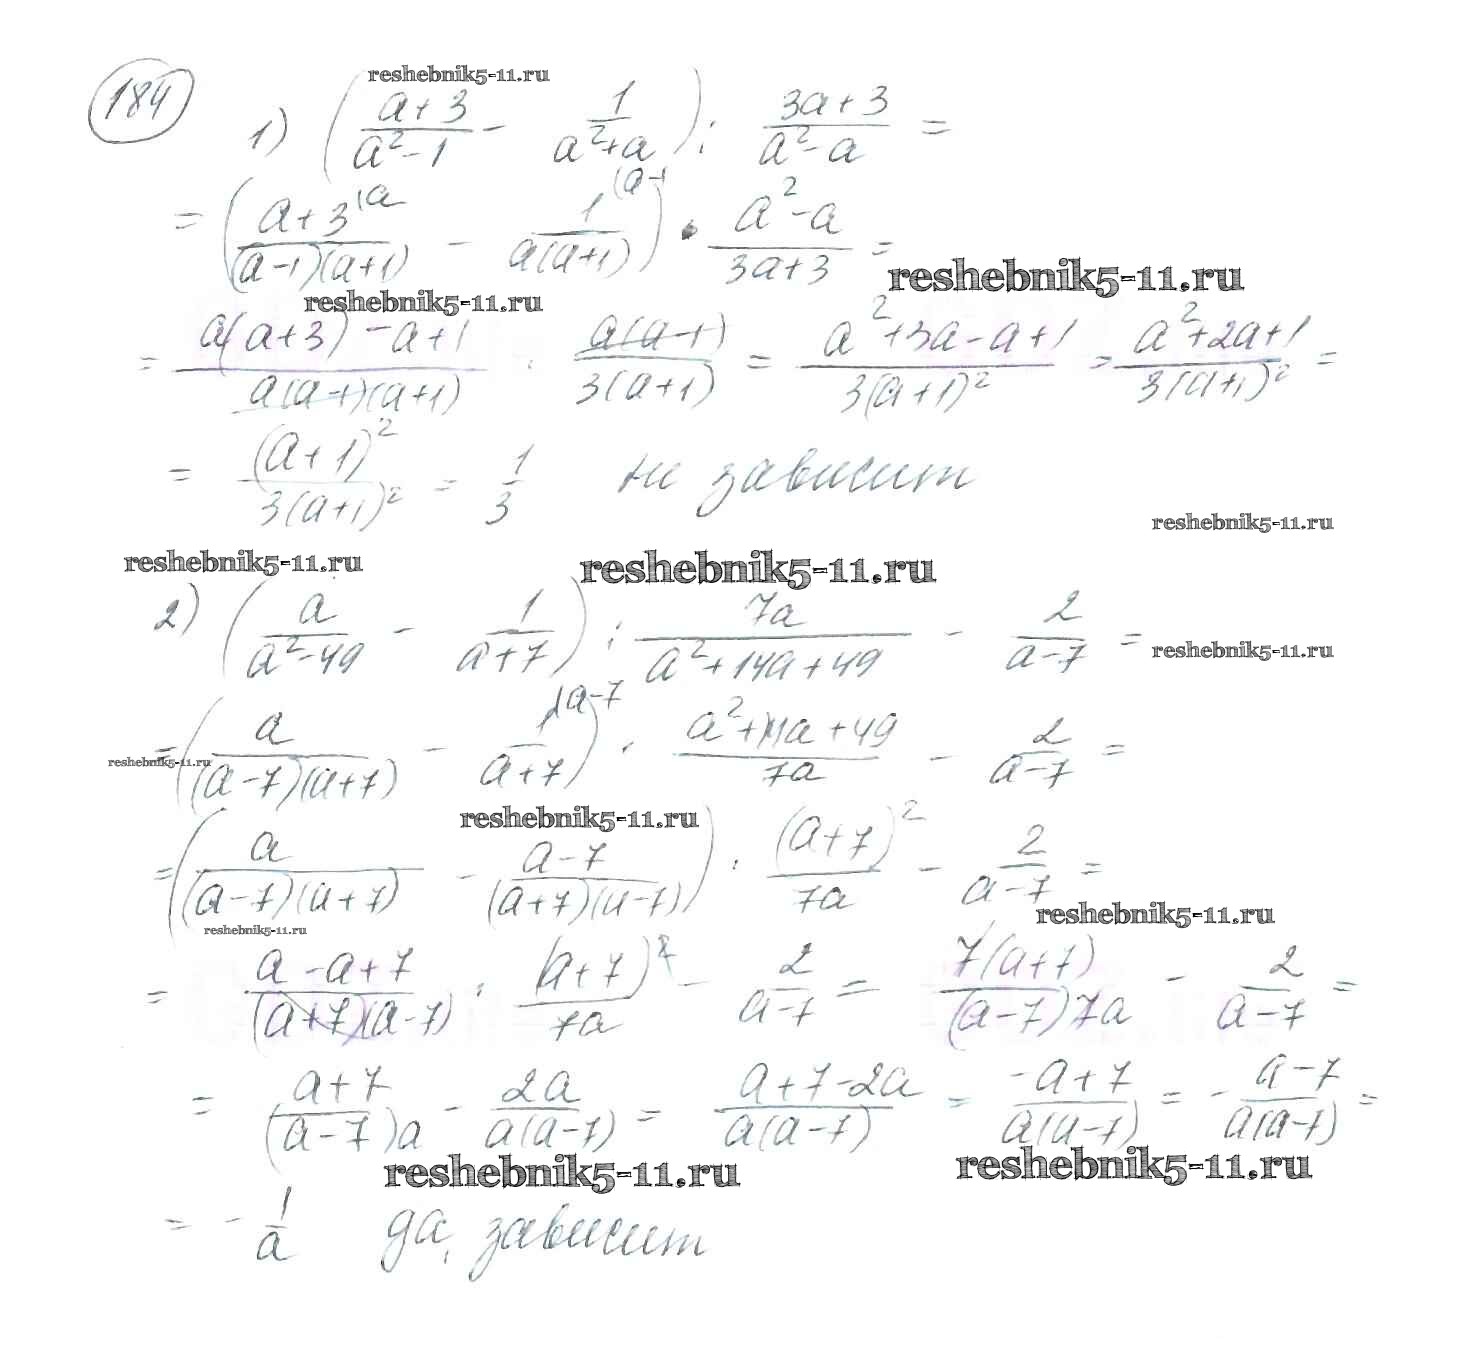 184
reshebnik5-11.ru
1) ( (a+3)/(a²-1) - 1/(a²+a) ) : (3a+3)/(a²-a) =
= ( (a+3)/((a-1)(a+1)) ⁽ᵃ - 1/(a(a+1)) ⁽ᵃ⁻¹ ) · (a²-a)/(3a+3) =
reshebnik5-11.ru
reshebnik5-11.ru
= (a(a+3)-a+1)/(a(a-1)(a+1)) · (a(a-1))/(3(a+1)) = (a²+3a-a+1)/(3(a+1)²) = (a²+2a+1)/(3(a+1)²) =
= (a+1)²/(3(a+1)²) = 1/3 не зависит
reshebnik5-11.ru
reshebnik5-11.ru
reshebnik5-11.ru
2) ( a/(a²-49) - 1/(a+7) ) : 7a/(a²+14a+49) - 2/(a-7) =
reshebnik5-11.ru
= ( a/((a-7)(a+7)) - 1/(a+7) ⁽ᵃ⁻⁷ ) · (a²+14a+49)/(7a) - 2/(a-7) =
reshebnik5-11.ru
reshebnik5-11.ru
= ( a/((a-7)(a+7)) - (a-7)/((a+7)(a-7)) ) · (a+7)²/(7a) - 2/(a-7) =
reshebnik5-11.ru
reshebnik5-11.ru
= (a-a+7)/((a+7)(a-7)) · (a+7)²/(7a) - 2/(a-7) = 7(a+7)/((a-7)7a) - 2/(a-7) =
= (a+7)/((a-7)a) - 2a/(a(a-7)) = (a+7-2a)/(a(a-7)) = (-a+7)/(a(a-7)) = - (a-7)/(a(a-7)) =
reshebnik5-11.ru
reshebnik5-11.ru
= - 1/a да, зависит